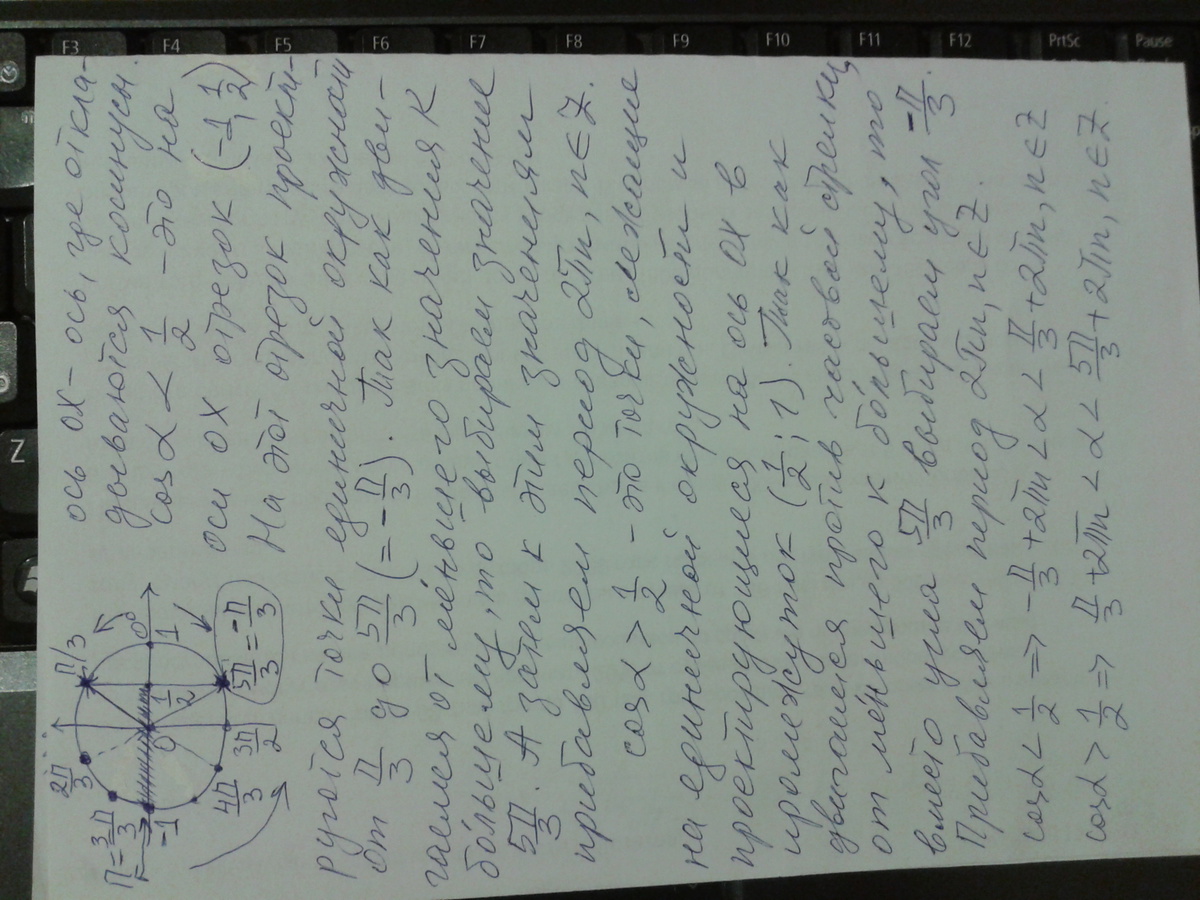 ось ох - ось, где откла-
дываются косинусы.
cosα < 1/2 - это на
оси ох отрезок (-1, 1/2)
На этот отрезок проекти-
руются точки единичной окружности
от π/3 до 5π/3 (= -π/3). Так как дви-
гаемся от ме́ньшего значения к
бо́льшему, то выбираем значение
5π/3. А затем к этим значениям
прибавляем период 2πn, n∈Z.
cosα > 1/2 - это точки, лежащие
на единичной окружности и
проектирующиеся на ось ох в
промежуток (1/2; 1). Так как
двигаемся против часовой стрелки
от ме́ньшего к бо́льшему, то
вместо угла 5π/3 выбираем угол -π/3.
Прибавляем период 2πn, n∈Z.
cosα < 1/2 => -π/3 + 2πn < α < π/3 + 2πn, n∈Z
cosα > 1/2 => π/3 + 2πn < α < 5π/3 + 2πn, n∈Z.
π = 3π/3
2π/3
π/3
0°
-1
0
1/2
1
4π/3
3π/2
5π/3 = -π/3
F3
F4
F5
F6
F7
F8
F9
F10
F11
F12
PrtSc
Pause
Z